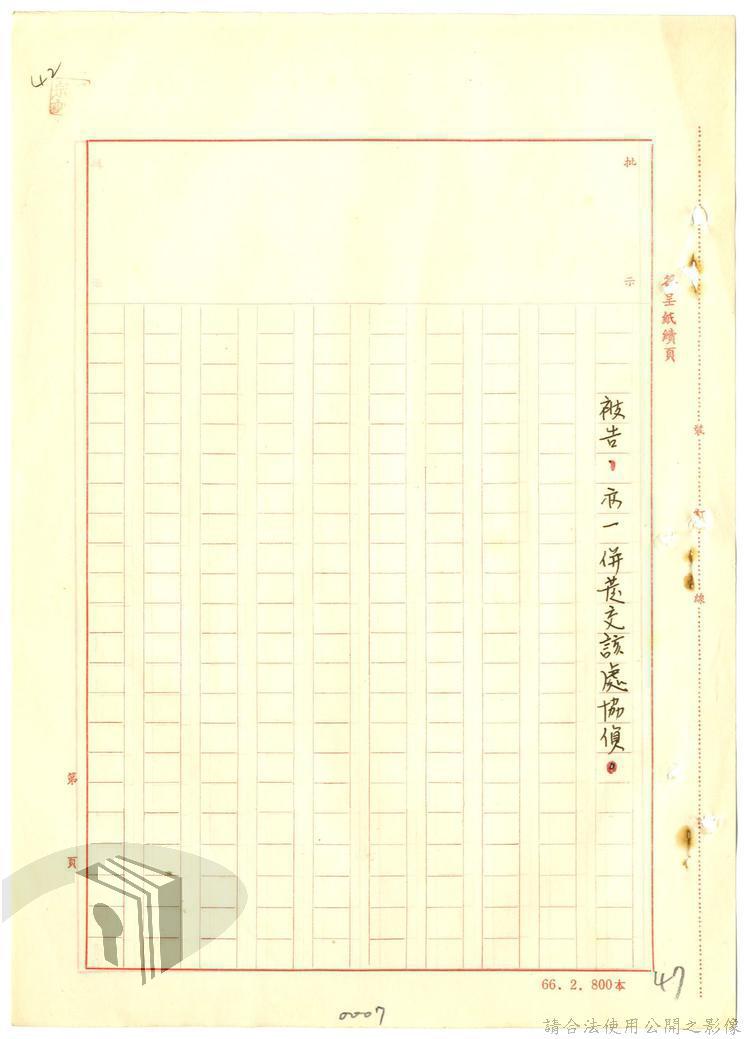 42
批
示
簽呈紙續頁
裝
訂
線
被告，亦一併發交該處協偵。
第
頁
66.2.800本
47
0007
請合法使用公開之影像